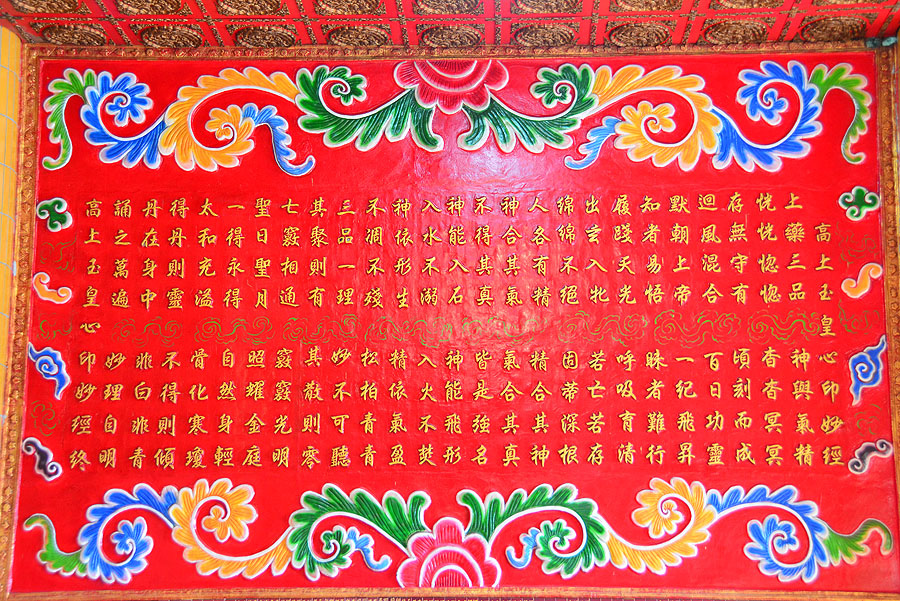 高上玉皇心印妙經
上藥三品神與氣精
恍恍惚惚杳杳冥冥
存無守有頃刻而成
迴風混合百日功靈
默朝上帝一紀飛昇
知者易悟昧者難行
履踐天光呼吸育清
出玄入牝若亡若存
綿綿不絕固蒂深根
人各有精精合其神
神合其氣氣合其真
不得其真皆是強名
神能入石神能飛形
入水不溺入火不焚
神依形生精依氣盈
不凋不殘松柏青青
三品一理妙不可聽
其聚則有其散則零
七竅相通竅竅光明
聖日聖月照耀金庭
一得永得自然身輕
太和充溢骨化寒瓊
得丹則靈不得則傾
丹在身中非白非青
誦之萬遍妙理自明
高上玉皇心印妙經終